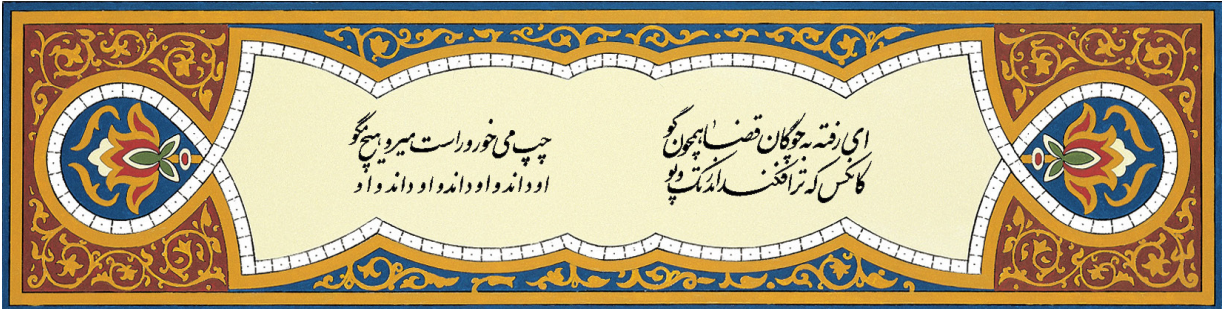 ای رفته به چوگان قضا همچون گو چپ می خور و راست میرو هیچ مگو
کانکس که ترا فکند اندر تک و پو او داند و او داند و او داند و او